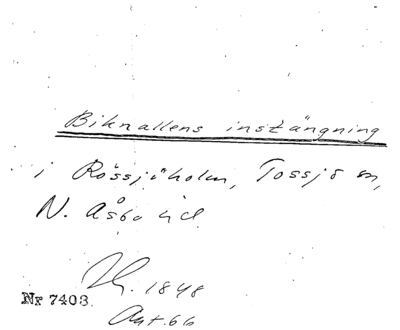 Biknallens instängning
i Rössjöholm, Tossjö sn,
N. Åsbo hd
1848
Nr 7403.
Ant. 66